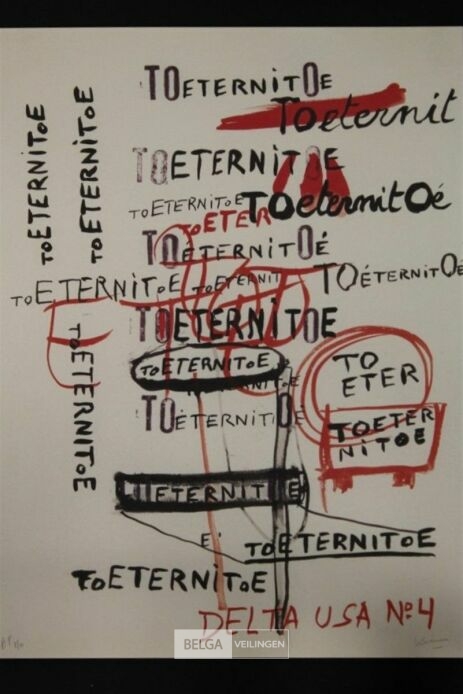 TOETERNITOE
TOeternit
TOETERNITOE
TOETERNITOE
TOETERNITOE
TOETERNITOE
TOeternitOé
TOETER
TOETERNITOÉ
TOETERNITOE
TOETERNIT
TOÉTERNITOE
TOETERNITOE
TOETERNITOE
TOETERNITOE
TO
ETER
TOÉTERNITOE
TOETER
NITOE
ETERNIT E
E'
TOETERNITOE
TOETERNITOE
DELTA USA No4
BELGA VEILINGEN